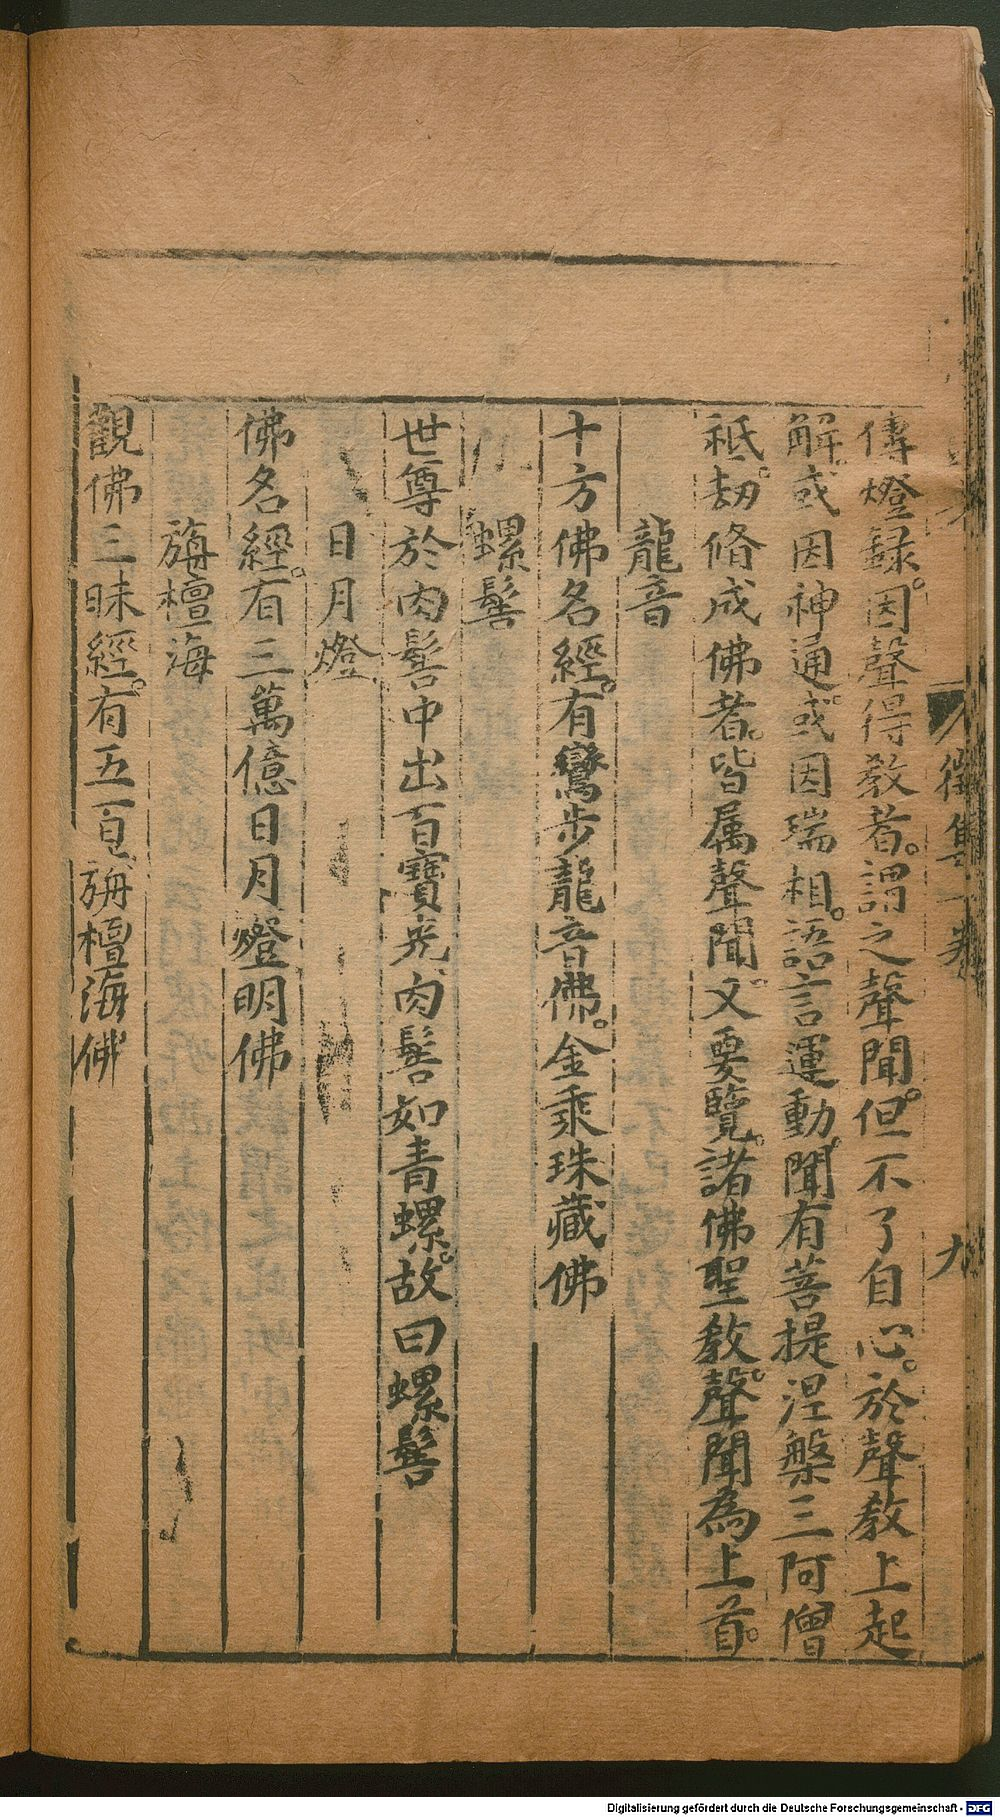 傳燈録。因聲得教者。謂之聲聞。但不了自心。於聲教上起
解。或因神通。或因瑞相。語言運動。聞有菩提涅槃三阿僧
秖劫脩成佛者。皆属聲聞。又要覽。諸佛聖教。聲聞為上首。
龍音
十方佛名經。有鸞步龍音佛。金乘珠藏佛
螺髻
世尊於肉髻中出百寶光。肉髻如青螺。故曰螺髻
日月燈
佛名經。有三萬億日月燈明佛
旃檀海
觀佛三昧經。有五百旃檀海佛
集一卷
九
Digitalisierung gefördert durch die Deutsche Forschungsgemeinschaft - DFG